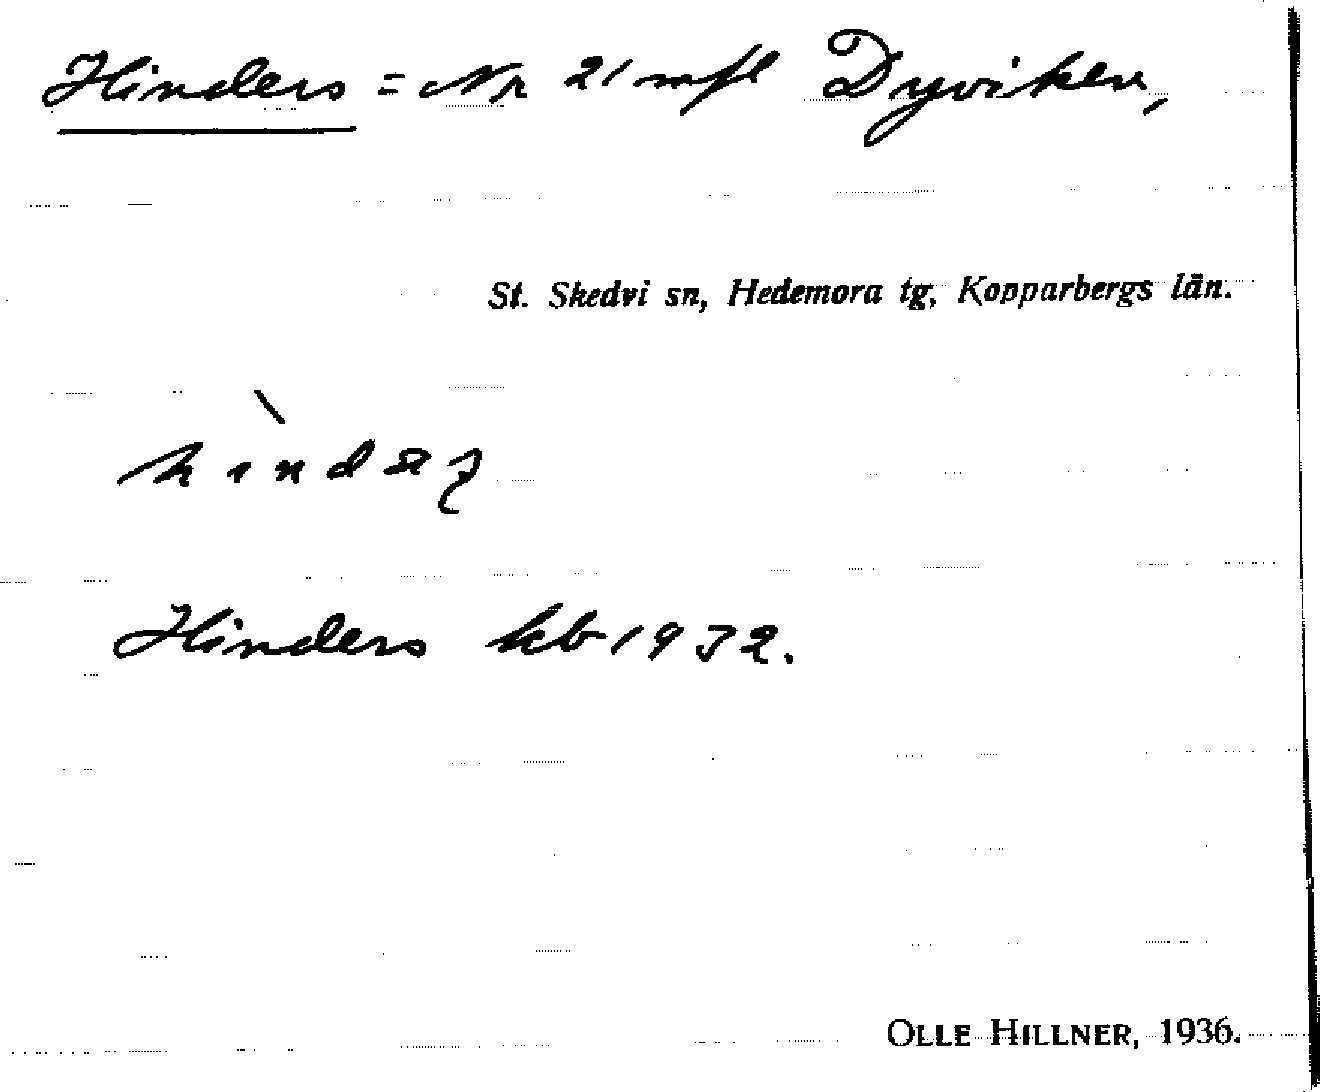 Hinders = Nr 21 mfl Dyviken,
St. Skedvi sn, Hedemora tg, Kopparbergs län.
Hinders kb 1932.
OLLE HILLNER, 1936.